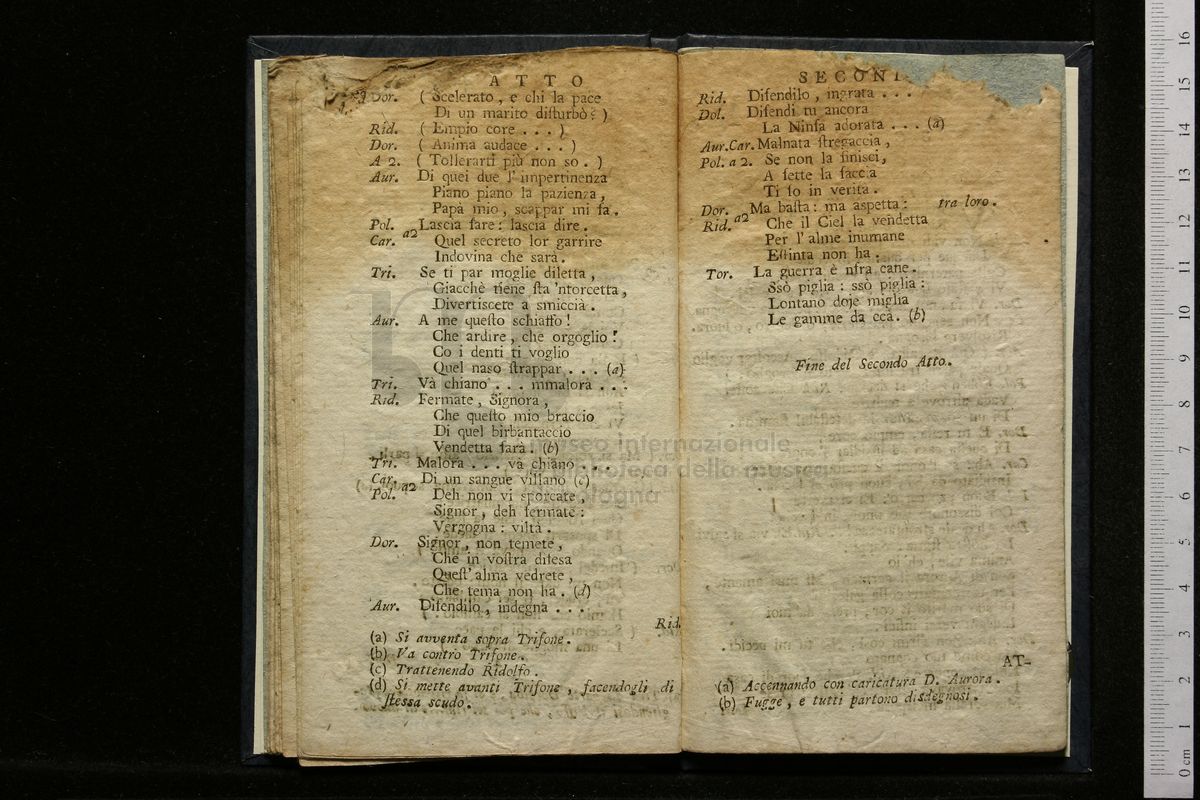 ATTO
Dor. ( Scelerato, e chi la pace
Di un marito disturbò? )
Rid. ( Empio core . . . )
Dor. ( Anima audace . . . )
A 2. ( Tollerarti più non so. )
Aur. Di quei due l' impertinenza
Piano piano la pazienza,
Papà mio, scappar mi fa.
Pol. Lascia fare: lascia dire.
Car. a2 Quel secreto lor garrire
Indovina che sarà.
Tri. Se ti par moglie diletta,
Giacchè tiene sta 'ntorcetta,
Divertiscete a smiccià.
Aur. A me questo schiaffo!
Che ardire, che orgoglio!
Co i denti ti voglio
Quel naso strappar . . . (a)
Tri. Và chiano . . . mmalora . . .
Rid. Fermate, Signora,
Che questo mio braccio
Di quel birbantaccio
Vendetta farà. (b)
Tri. Malora . . . và chiano . . .
Car. Di un sangue villano (c)
Pol. a2 Deh non vi sporcate,
Signor, deh fermate:
Vergogna: viltà.
Dor. Signor, non temete,
Che in vostra difesa
Quest' alma vedrete,
Che tema non ha. (d)
Aur. Difendilo, indegna . . .
Rid.
(a) Si avventa sopra Trifone.
(b) Va contro Trifone.
(c) Trattenendo Ridolfo.
(d) Si mette avanti Trifone, facendogli di
stessa scudo.
SECON
Rid. Difendilo, ingrata . . .
Dol. Difendi tu ancora
La Ninfa adorata . . . (a)
Aur.Car. Malnata stregaccia,
Pol. a 2. Se non la finisci,
A fette la faccia
Ti fo in verità.
Dor. Ma basta: ma aspetta: tra loro.
Rid. a2 Che il Ciel la vendetta
Per l' alme inumane
Estinta non ha.
Tor. La guerra è nfra cane.
Ssò piglia: ssò piglia:
Lontano doje miglia
Le gamme da ccà. (b)
Fine del Secondo Atto.
AT-
(a) Accennando con caricatura D. Aurora.
(b) Fugge, e tutti partono disdegnosi.
museo internazionale
biblioteca della musica
bologna
0 cm 1 2 3 4 5 6 7 8 9 10 11 12 13 14 15 16